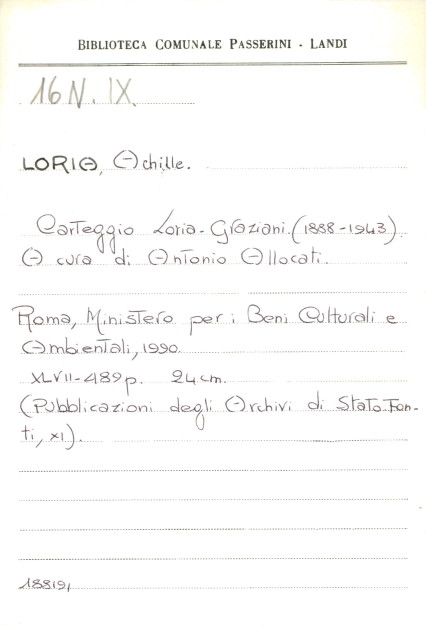 BIBLIOTECA COMUNALE PASSERINI - LANDI
16 N. IX.
LORIA, Achille.
Carteggio Loria-Graziani.(1888-1943).
A cura di Antonio Allocati.
Roma, Ministero per i Beni Culturali e
Ambientali, 1990.
XLVII-489 p. 24 cm.
(Pubblicazioni degli Archivi di Stato Fon-
ti, XI).
188191